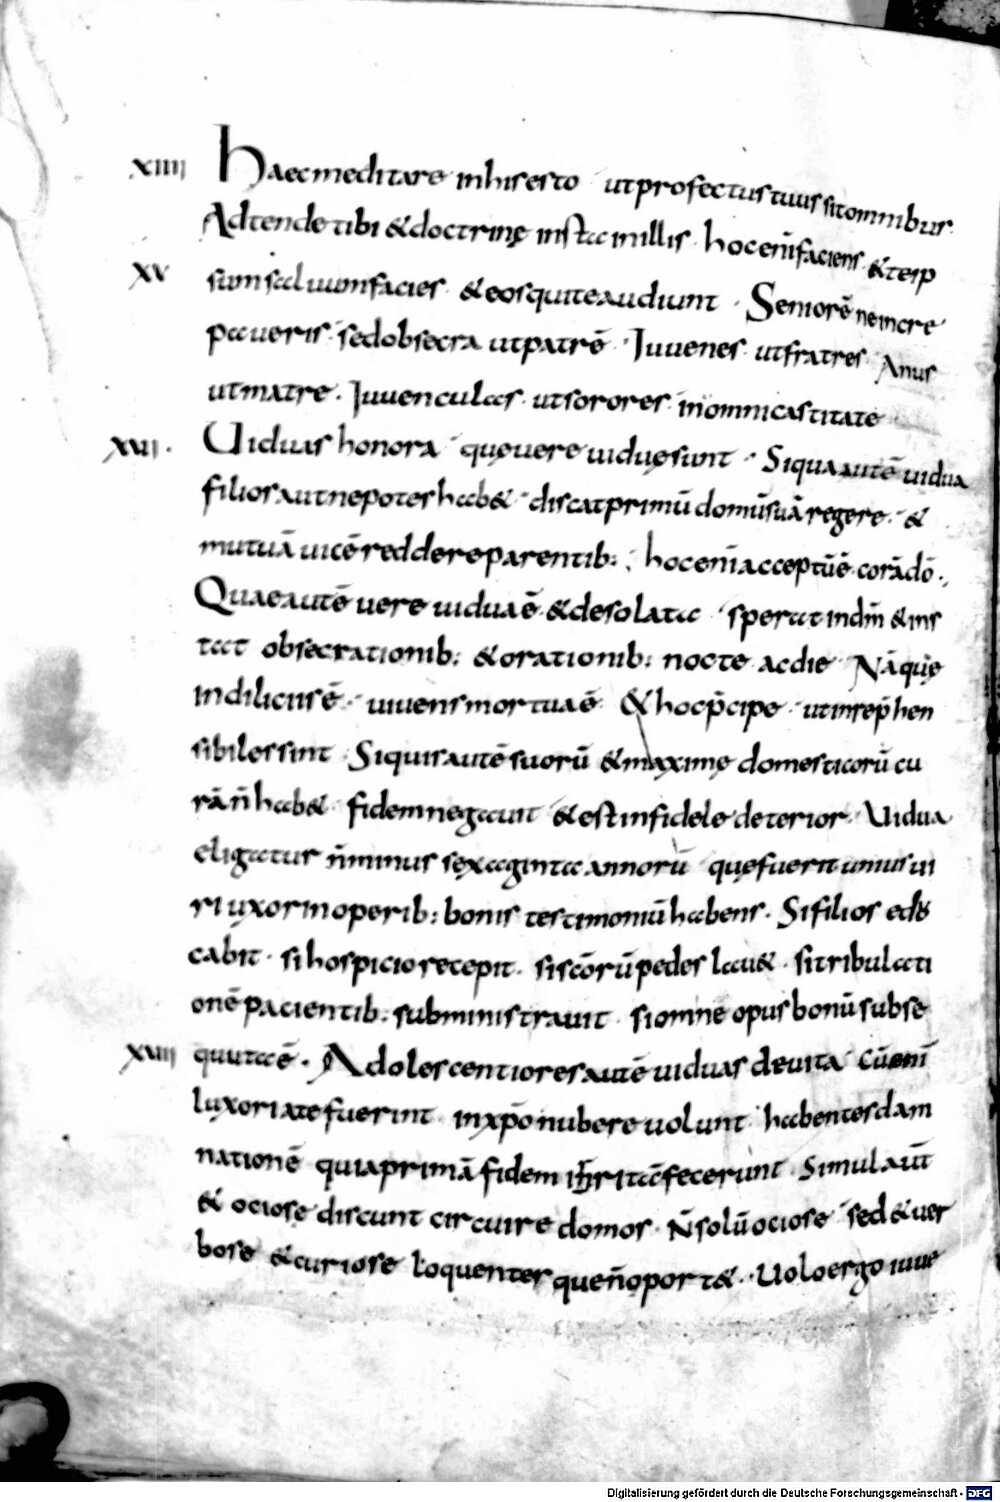 xiiii Haec meditare in his esto · ut profectus tuus sit omnibus.
Adtende tibi & doctrinę insta in illis · hoc enī faciens & teip
xv sum saluum facies · & eos qui te audiunt · Seniorē ne incre
paueris · sed obsecra ut patrē · Iuuenes · ut fratres Anus
ut matre · Iuuenculas · ut sorores · in omni castitate
xvi · Uiduas honora · quę uere uiduę sunt · Si qua autē uidua
filios aut nepotes hab& · discat primū domū suā regere · &
mutuā uicē reddere parentib: · hoc enī acceptū ē corā dō ·,
Quae autē uere uidua ē · & desolata · sperat in dm̄ & ins
tat obsecrationib: & orationib: nocte ac die Nā quę
in diliciis ē · uiuens mortua ē · & hoc p̄cipe · ut inrep̄hen
sibiles sint · Si quis autē suorū & maximę domesticorū cu
rā n̄ hab& · fidem negauit · & est infidele deterior · Uidua
eligatur n̄ minus sexaginta annorū · quę fuerit unius ui
ri uxor in operib: bonis testimoniū habens · Si filios edu
cabit · si hospicio recepit · si scōrū pedes lau& · si tribulati
onē pacientib: subministrauit · si omne opus bonū subse
xvii quuta ē · Adolescentiores autē uiduas deuita cū enī
luxoriate fuerint · in xp̄o nubere uolunt · habentes dam
nationē quia primā fidem irrita fecerunt · Simul aut̄
& ociose discunt circuire domos · N̄ solū ociose · sed & uer
bose & curiose loquentes que n̄ oport& · Uolo ergo iuue
Digitalisierung gefördert durch die Deutsche Forschungsgemeinschaft - DFG